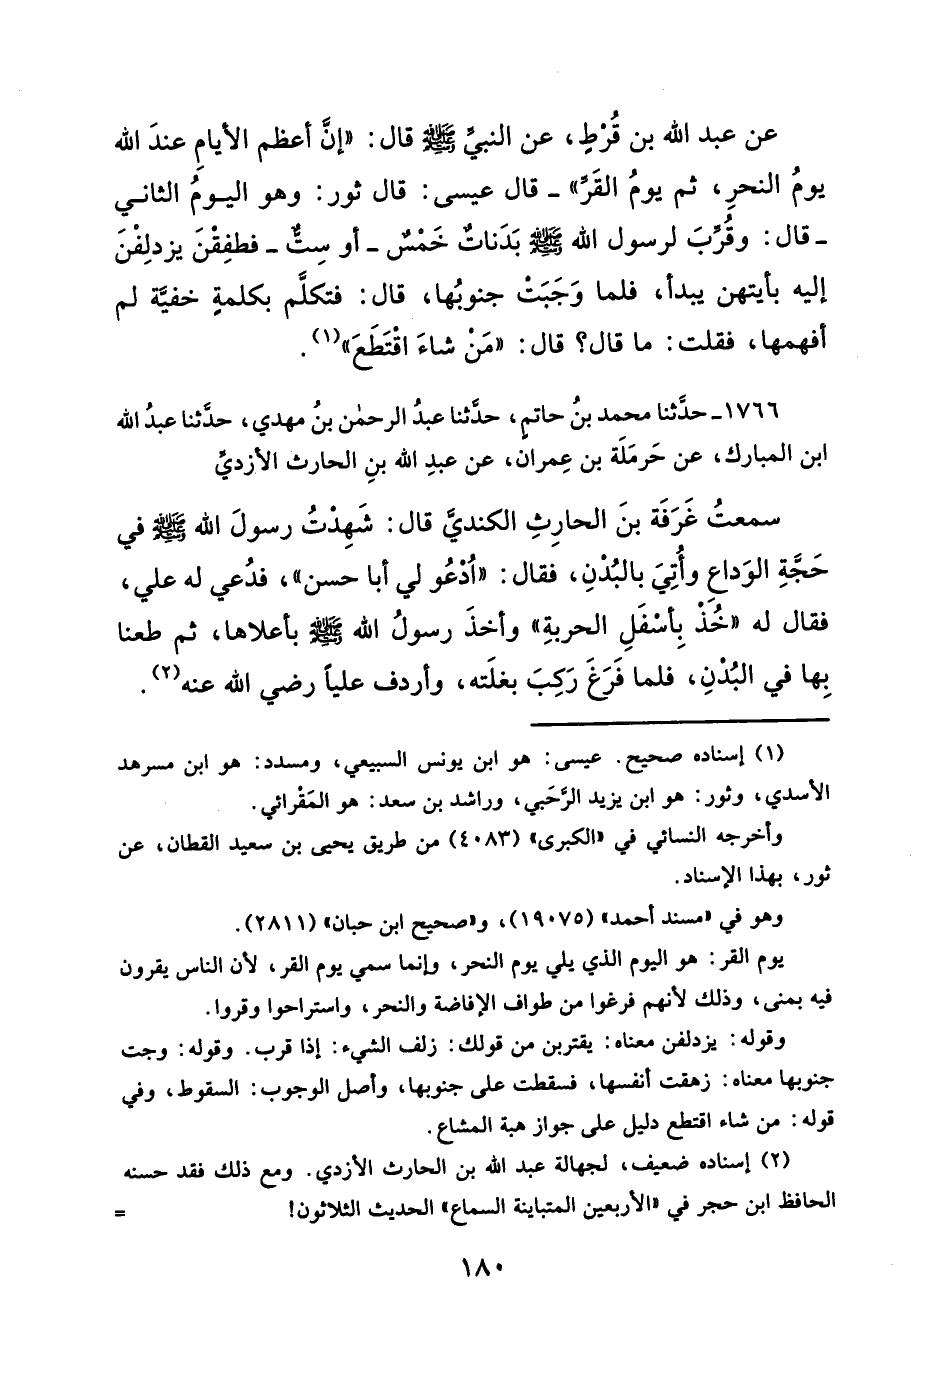 عن عبد الله بن قُرْطٍ، عن النبيِّ ﷺ قال: «إنَّ أعظم الأيامِ عندَ الله
يومُ النحرِ، ثم يومُ القَرِّ» ـ قال عيسى: قال ثور: وهو اليـومُ الثاني
ـ قال: وقُرِّبَ لرسول الله ﷺ بَدَناتٌ خَمْسٌ ـ أو سِتٌّ ـ فطفِقْنَ يزدلِفْنَ
إليه بأيتهن يبدأ، فلما وَجَبَتْ جنوبُها، قال: فتكلَّم بكلمةٍ خفيَّة لم
أفهمها، فقلت: ما قال؟ قال: «مَنْ شاءَ اقْتَطَعَ»(١).
١٧٦٦ـ حدَّثنا محمد بنُ حاتمٍ، حدَّثنا عبدُ الرحمٰن بنُ مهدي، حدَّثنا عبدُ الله
ابن المبارك، عن حَرمَلَة بن عِمران، عن عبدِ الله بنِ الحارث الأزديِّ
سمعتُ غَرَفَة بنَ الحارِثِ الكنديَّ قال: شَهِدْتُ رسولَ الله ﷺ في
حَجَّةِ الوَداعِ وأُتِيَ بالبُدْنِ، فقال: «اُدْعُو لي أبا حسن»، فدُعي له علي،
فقال له «خُذْ بِأسْفَلِ الحربةِ» وأخذَ رسولُ الله ﷺ بأعلاها، ثم طعنا
بِها في البُدْنِ، فلما فَرَغَ رَكِبَ بغلَته، وأردف علياً رضي الله عنه(٢).
(١) إسناده صحيح. عيسى: هو ابن يونس السبيعي، ومسدد: هو ابن مسرهد
الأسدي، وثور: هو ابن يزيد الرَّحَبي، وراشد بن سعد: هو المَقْرائي.
وأخرجه النسائي في «الكبرى» (٤٠٨٣) من طريق يحيى بن سعيد القطان، عن
ثور، بهذا الإسناد.
وهو في «مسند أحمد» (١٩٠٧٥)، و«صحيح ابن حبان» (٢٨١١).
يوم القر: هو اليوم الذي يلي يوم النحر، وإنما سمي يوم القر، لأن الناس يقرون
فيه بمنى، وذلك لأنهم فرغوا من طواف الإفاضة والنحر، واستراحوا وقروا.
وقوله: يزدلفن معناه: يقتربن من قولك: زلف الشيء: إذا قرب. وقوله: وجت
جنوبها معناه: زهقت أنفسها، فسقطت على جنوبها، وأصل الوجوب: السقوط، وفي
قوله: من شاء اقتطع دليل على جواز هبة المشاع.
(٢) إسناده ضعيف، لجهالة عبد الله بن الحارث الأزدي. ومع ذلك فقد حسنه
الحافظ ابن حجر في «الأربعين المتباينة السماع» الحديث الثلاثون! =
١٨٠